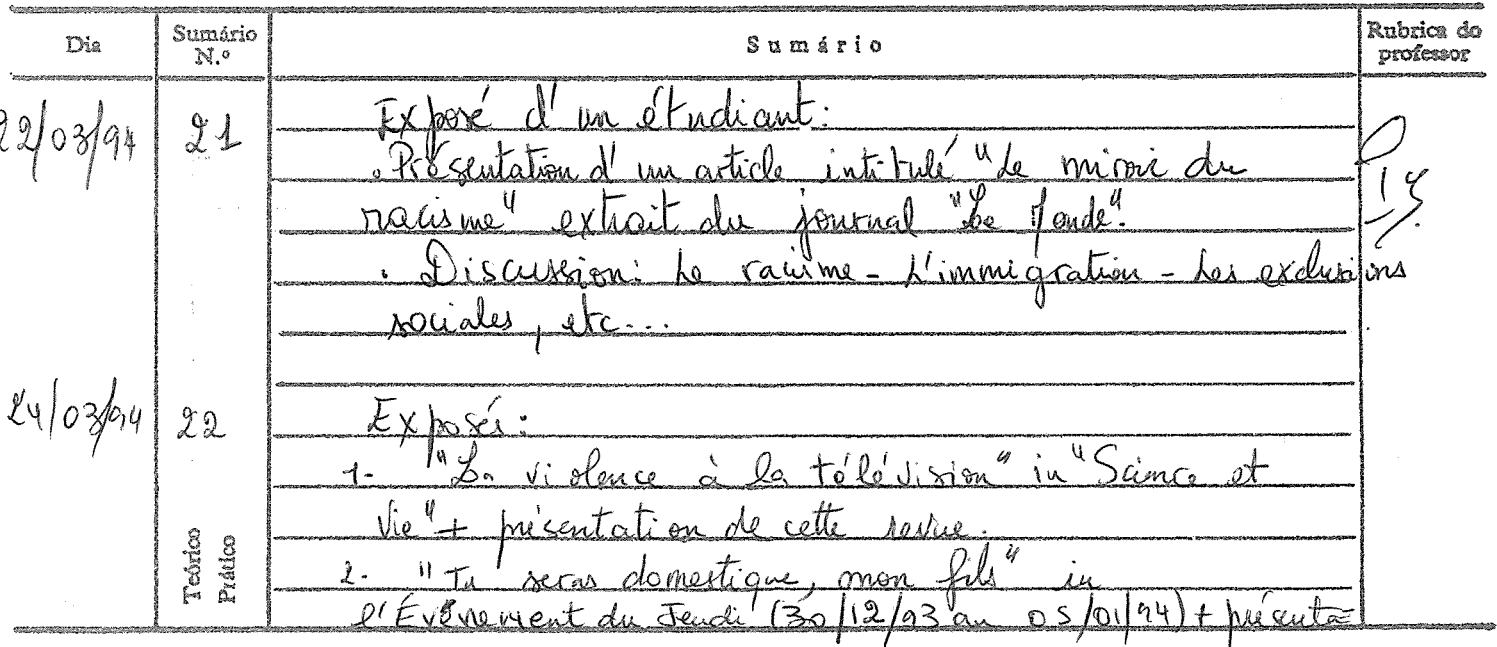 Dia Sumário N.º Sumário Rubrica do professor
22/03/94 21 Exposé d'un étudiant:
. Présentation d'un article intitulé "Le miroir du
racisme" extrait du journal "Le Monde".
. Discussion: Le racisme - L'immigration - Les exclusions
sociales, etc...
24/03/94 22 Exposés:
1- "La violence à la télévision" in "Science et
Vie" + présentation de cette revue.
Teórico Prático
2- "Tu seras domestique, mon fils" in
l'Évènement du Jeudi (30/12/93 au 05/01/94) + présenta-